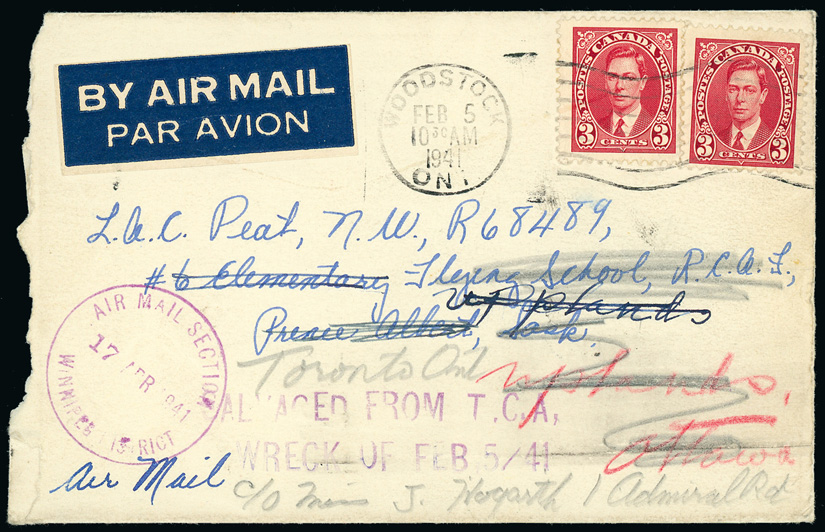 BY AIR MAIL
PAR AVION
WOODSTOCK
FEB 5
10 30 AM
1941
ONT
POSTES CANADA POSTAGE
3 CENTS 3
POSTES CANADA POSTAGE
3 CENTS 3
L.A.C. Peat, N.W., R68489,
#6 Elementary Flying School, R.C.A.F.,
Uplands
Prince Albert, Sask.
Toronto Ont
Uplands,
Ottawa
AIR MAIL SECTION
17 APR 1941
WINNIPEG DISTRICT
SALVAGED FROM T.C.A,
WRECK OF FEB 5/41
Air Mail
c/o Miss J. Hogarth 1 Admiral Rd